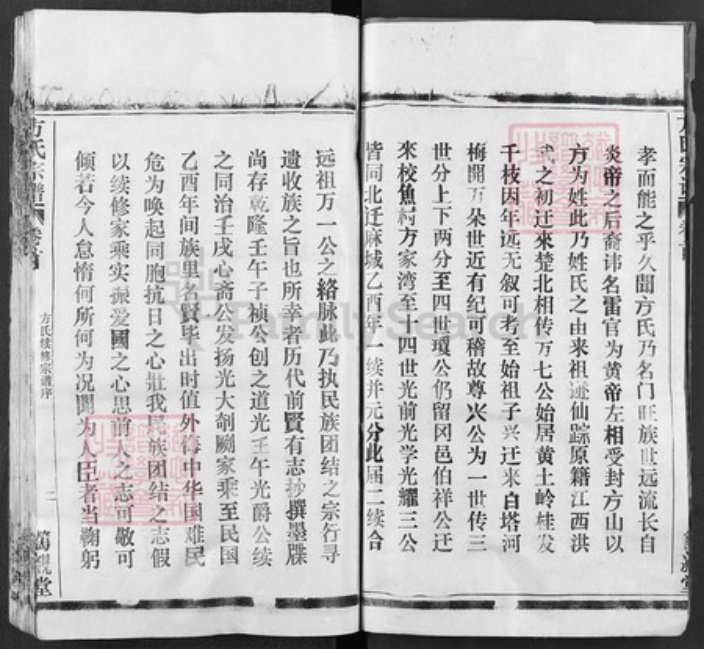 孝而能之乎久聞方氏乃名门旺族世远流长自
炎帝之后裔讳名雷官为黄帝左相受封方山以
方为姓此乃姓氏之由来祖迹仙踪原籍江西洪
武之初迁來楚北相传万七公始居黄土岭桂发
千枝因年远无叙可考至始祖子兴迁来白塔河
梅開万朵世近有纪可稽故尊兴公为一世传三
世分上下两分至四世瓊公仍留冈邑伯祥公迁
來校魚村方家湾至十四世光前光学光耀三公
皆同北迁麻城乙酉年一续并元分此届二续合
远祖万一公之络脉此乃执民族团结之宗行寻
遗收族之旨也所幸者历代前賢有志抄撰墨牒
尚存乾隆壬午子祯公创之道光壬午光爵公续
之同治壬戌心斋公发扬光大剞劂家乘至民国
乙酉年间族里名賢毕出时值外侮中华国难民
危为唤起同胞抗日之心壯我民族团结之志假
以续修家乘实振爱國之心思前人之志可敬可
傾若今人怠惰何所何为况聞为人臣者当鞠躬
方氏宗谱
卷首
方氏续修宗谱序
二
堂
FamilySearch